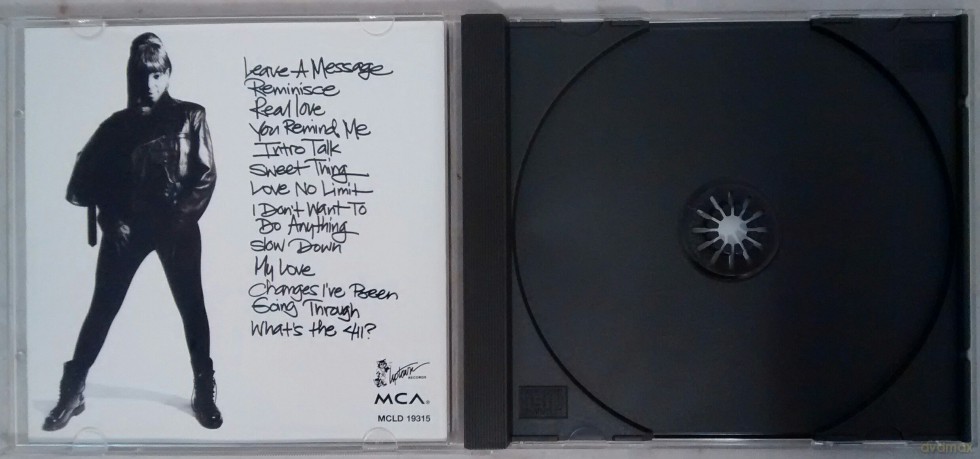 Leave A Message
Reminisce
Real love
You Remind Me
Intro Talk
Sweet Thing
Love No Limit
I Don't Want To
Do Anything
Slow Down
My Love
Changes I've Been
Going Through
What's the 411?
Uptown
RECORDS
MCA®
MCLD 19315
avamax